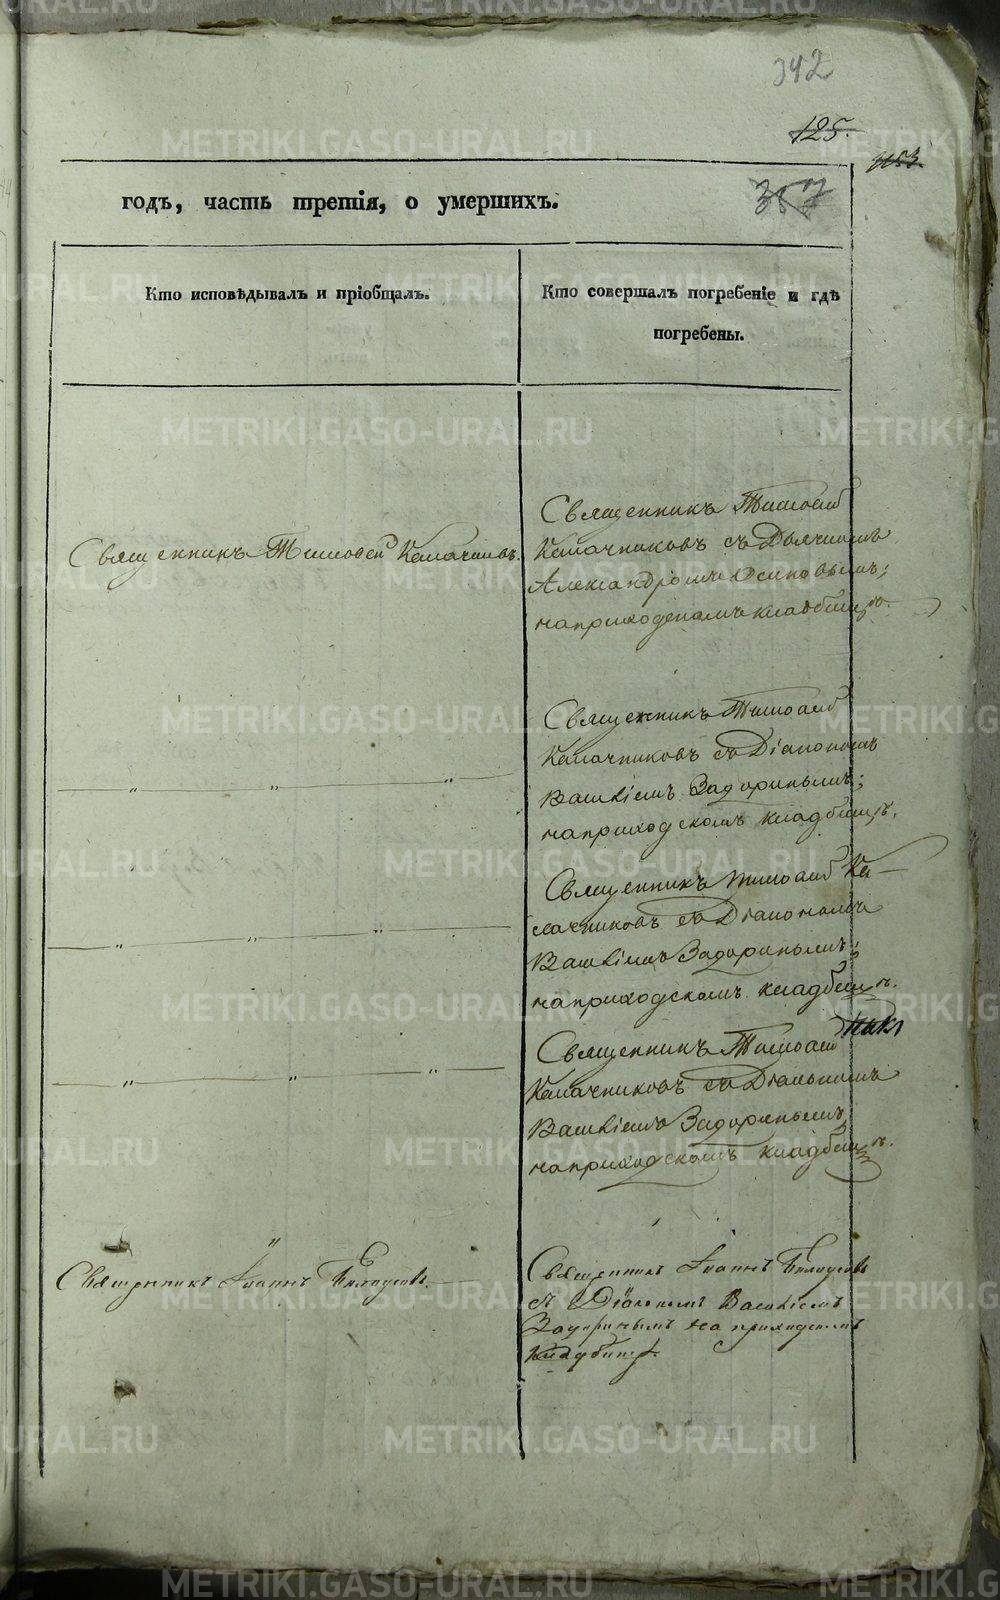 342
125.
1153.
357
годъ, часть третія, о умершихъ.
Кто исповѣдывалъ и пріобщалъ.
Кто совершалъ погребеніе и гдѣ
погребены.
Священникъ Тимоѳей Калачниковъ.
Священникъ Тимоѳей
Калачниковъ съ Дьячкомъ
Александромъ Осиповымъ;
на приходскомъ кладбищѣ.
Священникъ Тимоѳей
Калачниковъ съ Діакономъ
Василіемъ Задоринымъ;
на приходскомъ кладбищѣ.
— „ — „ — „ —
Священникъ Тимоѳей Ка-
лачниковъ съ Діакономъ
Василіемъ Задоринымъ;
на приходскомъ кладбищѣ.
— „ — „ — „ —
Священникъ Тимоѳей
Калачниковъ съ Діакономъ
Василіемъ Задоринымъ,
на приходскомъ кладбищѣ.
— „ — „ — „ —
Священникъ Іоаннъ Бѣлоусовъ
Священникъ Іоаннъ Бѣлоусовъ
съ Діакономъ Василіемъ
Задоринымъ на приходскомъ
кладбищѣ.
METRIKI.GASO-URAL.RU